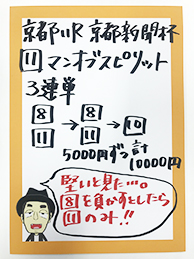 京都11R 京都新聞杯
11 マンオブスピリット
3連単
8 → 8 → 10
11 11
5000円ずつ 計
10000円
堅いと見た…。
8を負かすとしたら
11のみ!!